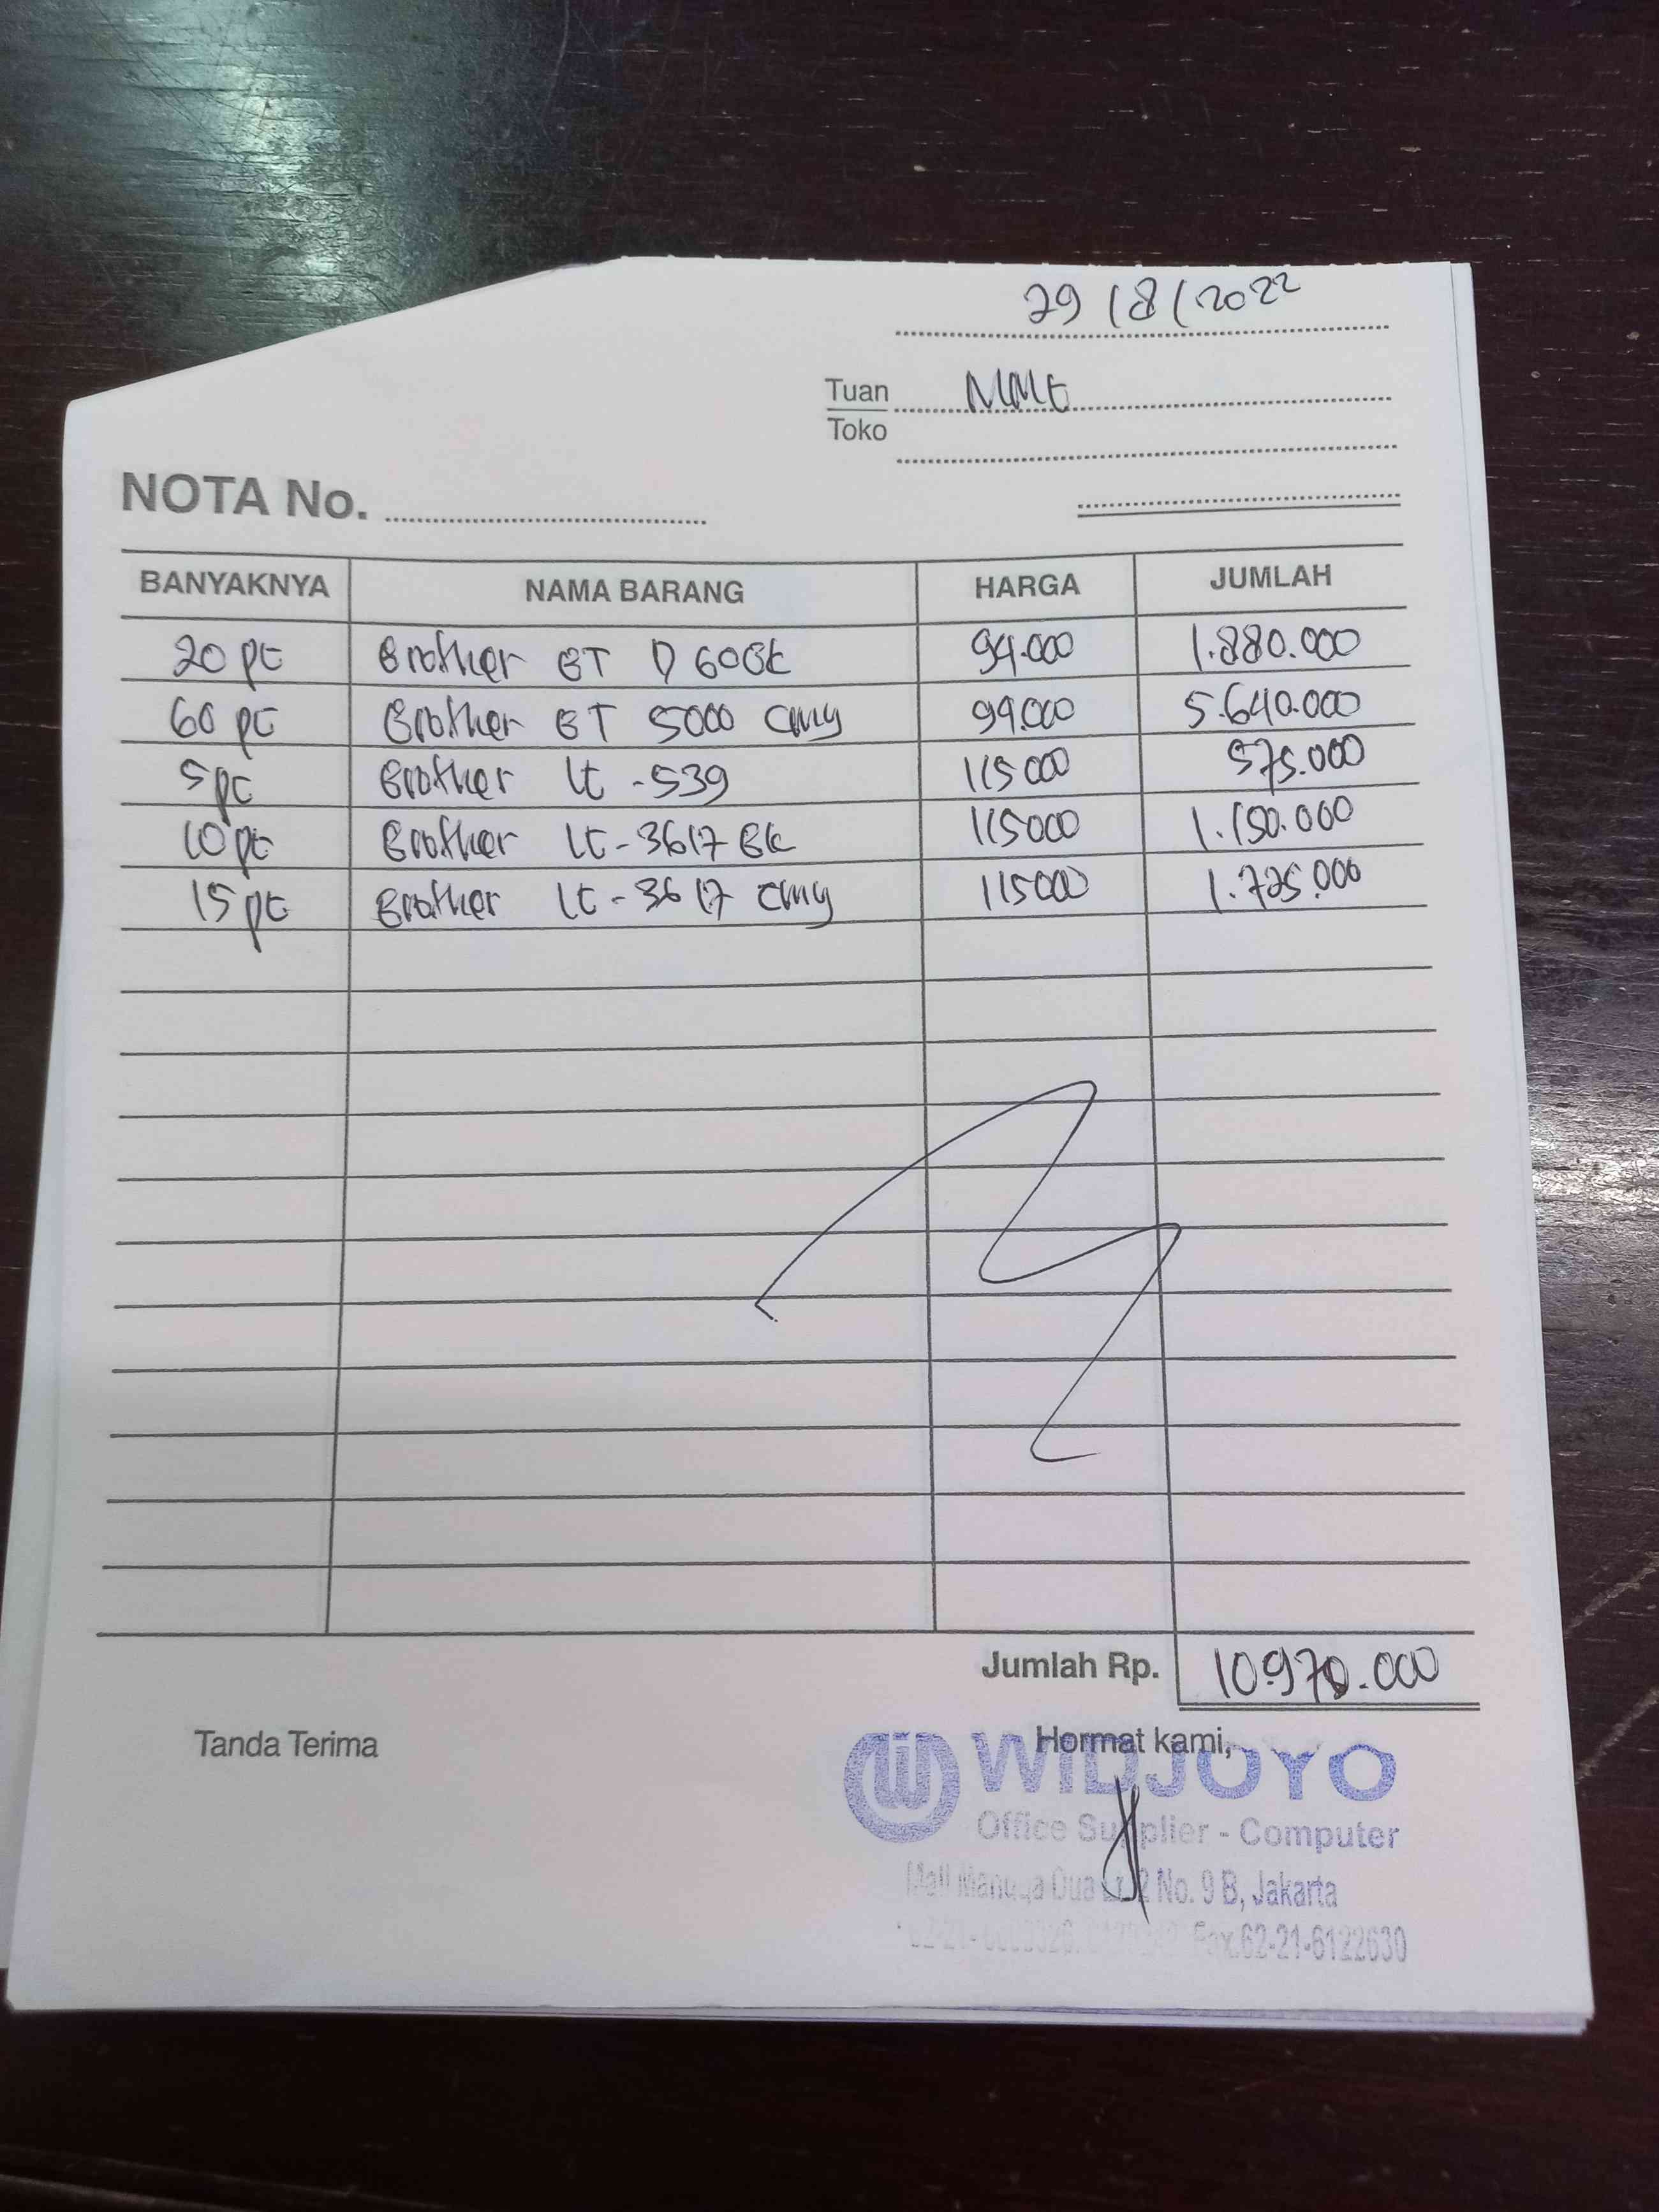 29/8/2022
Tuan MMC
Toko
NOTA No.
BANYAKNYA NAMA BARANG HARGA JUMLAH
20 pc Brother BT D60BK 94.000 1.880.000
60 pc Brother BT 5000 cmy 94.000 5.640.000
5 pc Brother LC-539 115000 575.000
10 pc Brother LC-3617 BK 115000 1.150.000
15 pc Brother LC-3617 cmy 115000 1.725.000
Jumlah Rp. 10.970.000
Tanda Terima Hormat kami,
WIDJOYO
Office Supplier - Computer
Mall Mangga Dua Lt. 2 No. 9 B, Jakarta
Fax.62-21-6122630